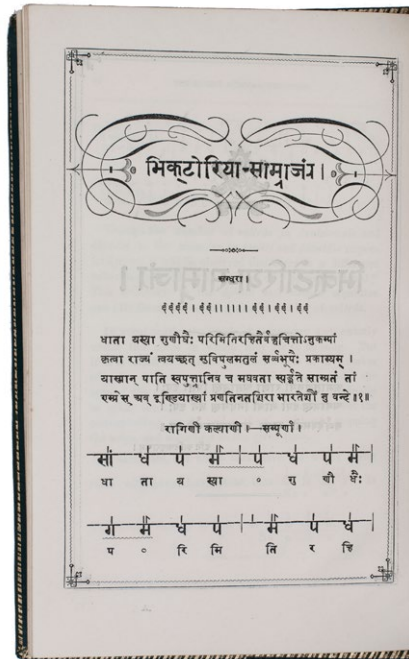 भिक्टोरिया-साम्राज्यं।
स्रग्धरा।
धाता यस्या गुणौघैः परिमितिरचितैर्बद्धचित्तो ऽनुकम्पां
कृत्वा राज्यं त्वयच्छत् सुविपुलमतुलं सर्व्वभूपैः प्रकाम्यम्।
यास्मान् पाति स्वपुत्त्रानिव च मघवता स्पर्द्धते साम्प्रतं तां
एम्प्रेस् अव् इण्डियाख्यां प्रणतिनतशिरा भारतेशीं नु वन्दे॥१॥
रागिणी कल्याणी।—सम्पूर्णा।
सां ध प म प ध प म
धा ता य स्या ॰ गु णौ घैः
ग म ध प म प ध
प ॰ रि मि ति र चि